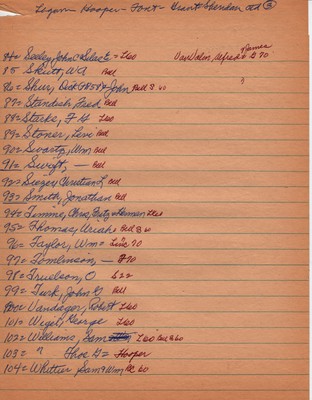 Logan - Hooper - Foat - Grant Sheridan Std ③
84= Seeley, John & Silas E = L60
Van Dolm, Alfred & James G 70
85 Skutt, W.A Bell
86= Shur, Dick & John Bell S 60
87= Standish, Fred Bell
88= Starks, F H L60
89= Stoner, Levi Bell
90= Swartz, Wm, Bell
91= Swift, — Bell
92= Sieger, Christian L, Bell
93= Smith, Jonathan Bell
94= Timme, Chris, Fritz & Herman L60
95= Thomas, Uriah Bell S 60
96= Taylor, Wm = Linc 70
97= Tomlinson, — G70
98= Truelson, O L 22
99= Turk, John G Bell
100= Vandager, Robert L60
101= Wigel, George L60
102= Williams, Sam L60 Bell S 60
103= " Thos H = Hooper
104= Whittier Sam & Wm, Bell 60